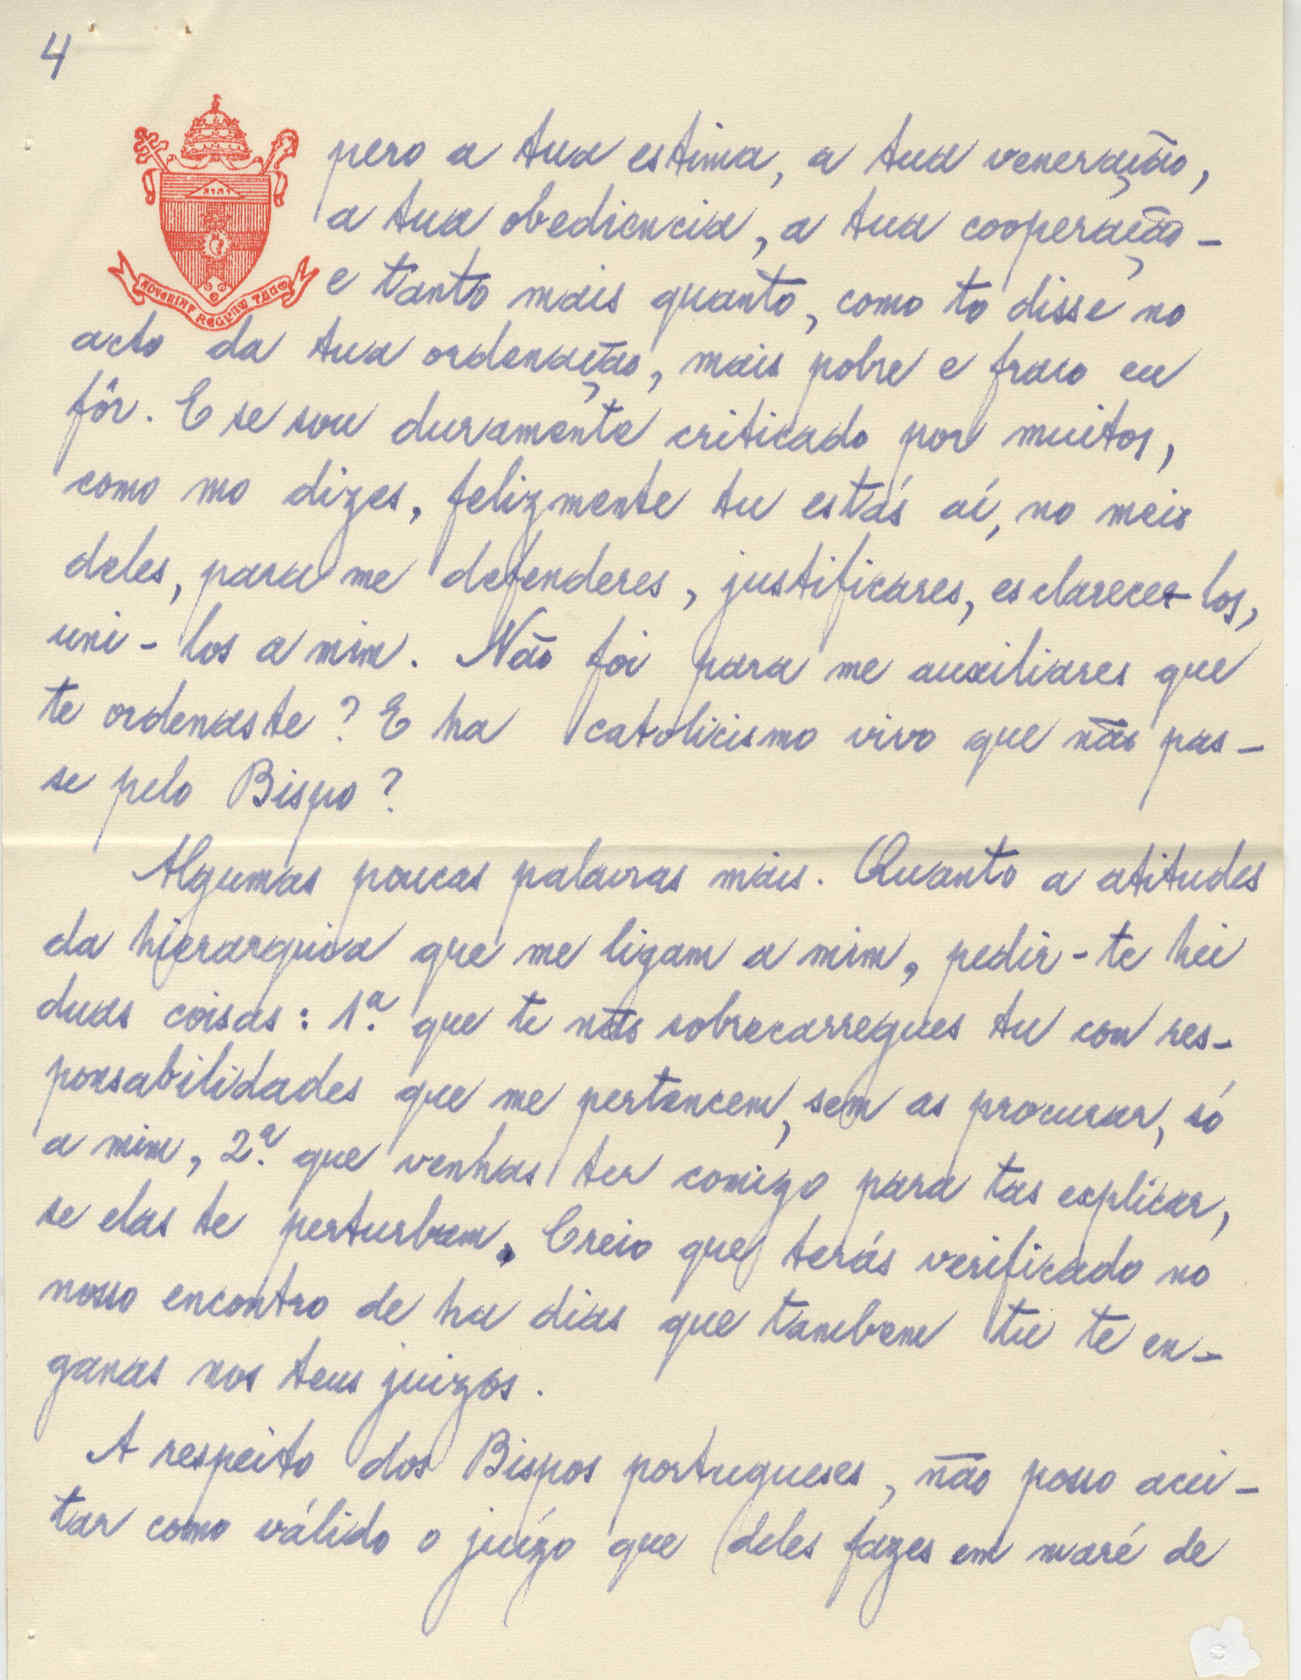 4
ADVENIAT REGNUM TUUM
pero a tua estima, a tua veneração,
a tua obediencia, a tua cooperação -
e tanto mais quanto, como to disse no
acto da tua ordenação, mais pobre e fraco eu
fôr. E se sou duramente criticado por muitos,
como mo dizes, felizmente tu estás aí, no meio
deles, para me defenderes, justificares, esclarecê-los,
uni-los a mim. Não foi para me auxiliares que
te ordenaste? E ha catolicismo vivo que não pas-
se pelo Bispo?
Algumas poucas palavras mais. Quanto a atitudes
da hierarquia que me ligam a mim, pedir-te hei
duas coisas: 1.ª que te não sobrecarregues tu com res-
ponsabilidades que me pertencem, sem as procurar, só
a mim, 2.ª que venhas ter comigo para tas explicar,
se elas te perturbam. Creio que terás verificado no
nosso encontro de ha dias que tambem tu te en-
ganas nos teus juizos.
A respeito dos Bispos portugueses, não posso acei-
tar como válido o juízo que deles fazes em maré de